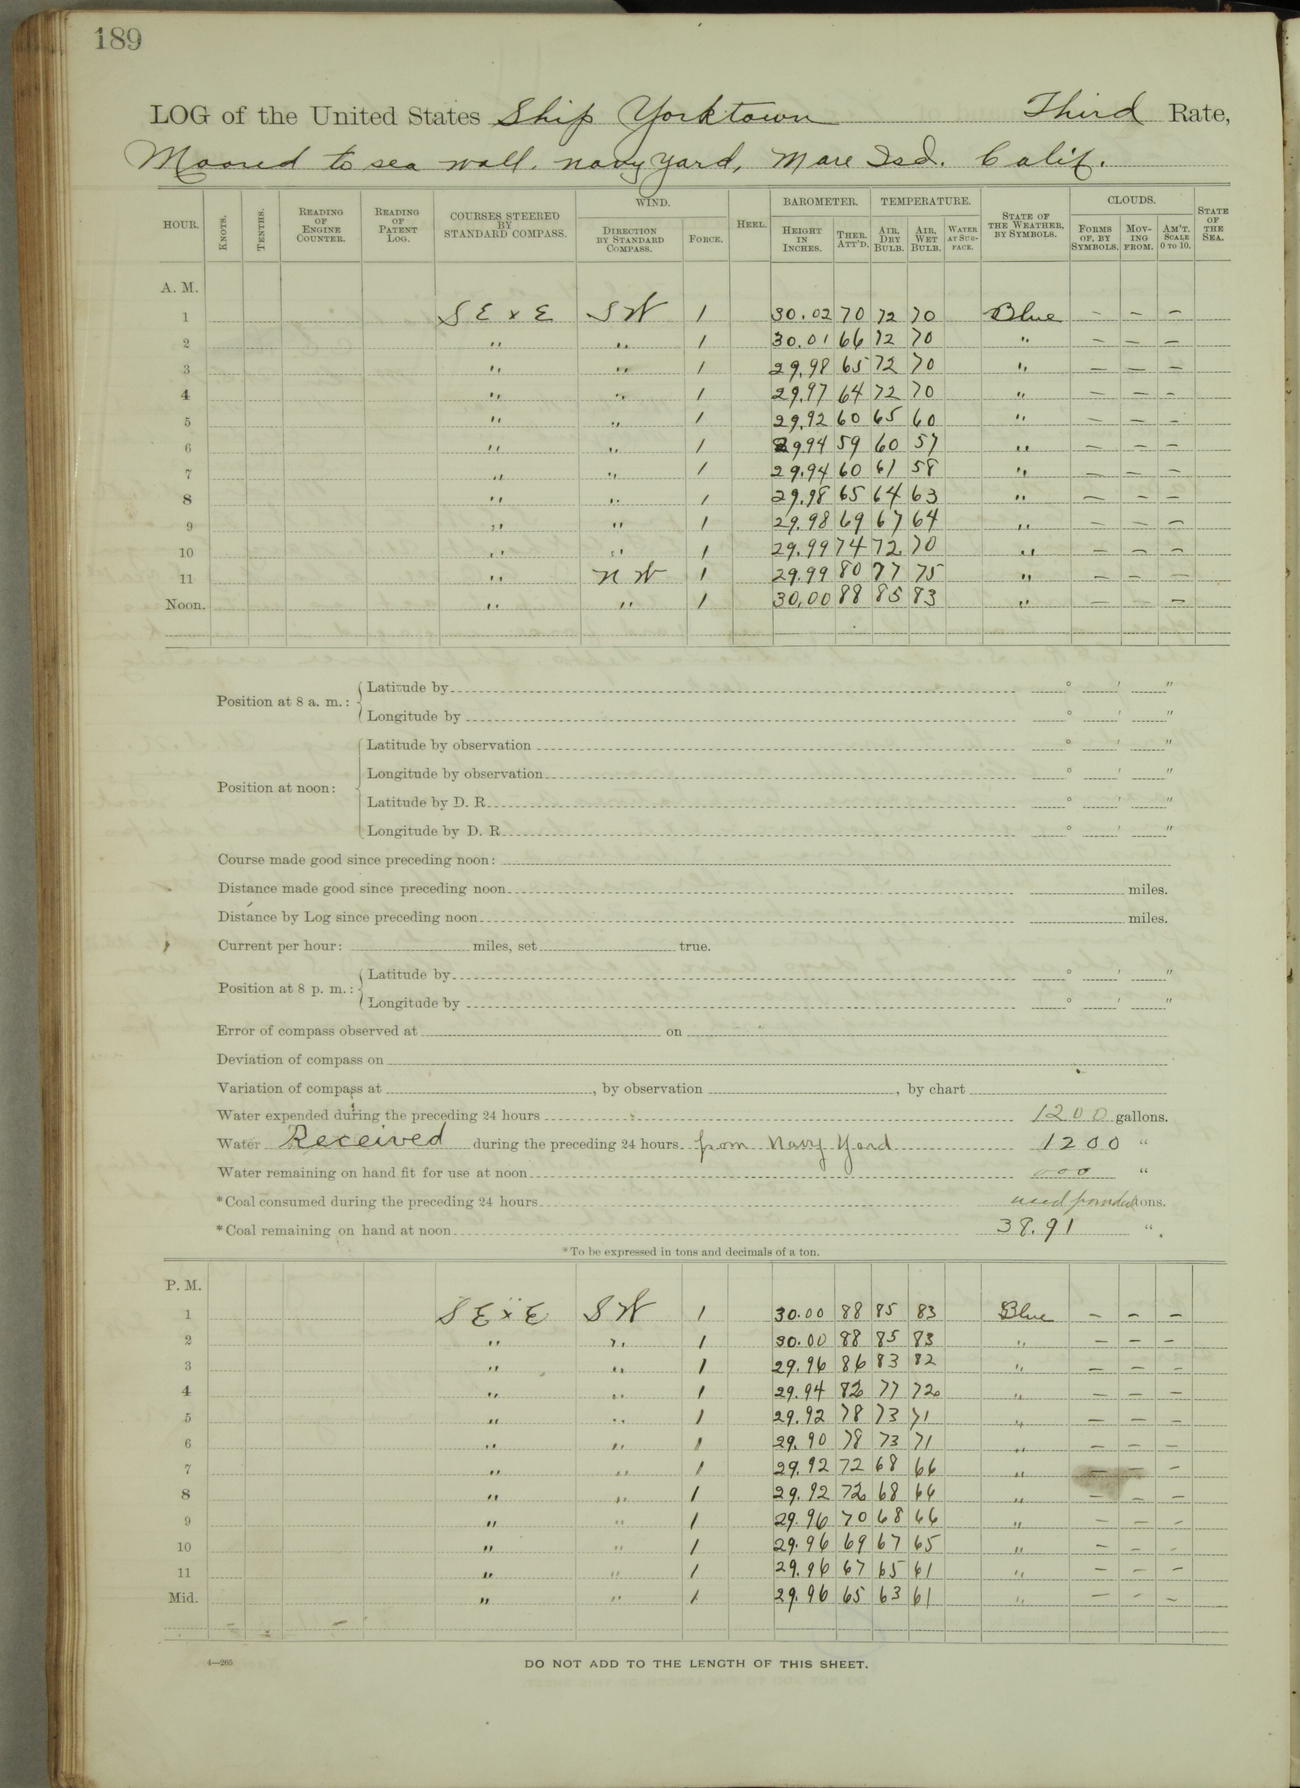 189
LOG of the United States Ship Yorktown Third Rate,
Moored to sea wall. navy yard, Mare Isd. Calif.
HOUR. KNOTS. TENTHS. READING OF ENGINE COUNTER. READING OF PATENT LOG. COURSES STEERED BY STANDARD COMPASS. WIND. DIRECTION BY STANDARD COMPASS. FORCE. HEEL. BAROMETER. HEIGHT IN INCHES. THER. ATT'D. TEMPERATURE. AIR, DRY BULB. AIR, WET BULB. WATER AT SURFACE. STATE OF THE WEATHER, BY SYMBOLS. CLOUDS. FORMS OF, BY SYMBOLS. MOVING FROM. AM'T. SCALE 0 TO 10. STATE OF THE SEA.
A. M.
1 S E x E S W 1 30.02 70 72 70 Blue — — —
2 " " 1 30.01 66 72 70 " — — —
3 " " 1 29.98 65 72 70 " — — —
4 " " 1 29.97 64 72 70 " — — —
5 " " 1 29.92 60 65 60 " — — —
6 " " 1 29.94 59 60 57 " — — —
7 " " 1 29.94 60 61 58 " — — —
8 " " 1 29.98 65 64 63 " — — —
9 " " 1 29.98 69 67 64 " — — —
10 " " 1 29.99 74 72 70 " — — —
11 " N W 1 29.99 80 77 75 " — — —
Noon. " " 1 30.00 88 85 83 " — — —
Position at 8 a. m.: Latitude by ° ' "
Longitude by ° ' "
Position at noon: Latitude by observation ° ' "
Longitude by observation ° ' "
Latitude by D. R. ° ' "
Longitude by D. R. ° ' "
Course made good since preceding noon:
Distance made good since preceding noon miles.
Distance by Log since preceding noon miles.
Current per hour: miles, set true.
Position at 8 p. m.: Latitude by ° ' "
Longitude by ° ' "
Error of compass observed at on
Deviation of compass on
Variation of compass at , by observation , by chart
Water expended during the preceding 24 hours 1200 gallons.
Water Received during the preceding 24 hours from Navy Yard 1200 "
Water remaining on hand fit for use at noon 000 "
*Coal consumed during the preceding 24 hours used tons.
*Coal remaining on hand at noon 38.91 "
*To be expressed in tons and decimals of a ton.
P. M.
1 S E x E S W 1 30.00 88 85 83 Blue — — —
2 " " 1 30.00 88 85 83 " — — —
3 " " 1 29.96 86 83 82 " — — —
4 " " 1 29.94 82 77 72 " — — —
5 " " 1 29.92 78 73 71 " — — —
6 " " 1 29.90 78 73 71 " — — —
7 " " 1 29.92 72 68 66 " — — —
8 " " 1 29.92 72 68 66 " — — —
9 " " 1 29.96 70 68 66 " — — —
10 " " 1 29.96 69 67 65 " — — —
11 " " 1 29.96 67 65 61 " — — —
Mid. " " 1 29.96 65 63 61 " — — —
4—265
DO NOT ADD TO THE LENGTH OF THIS SHEET.